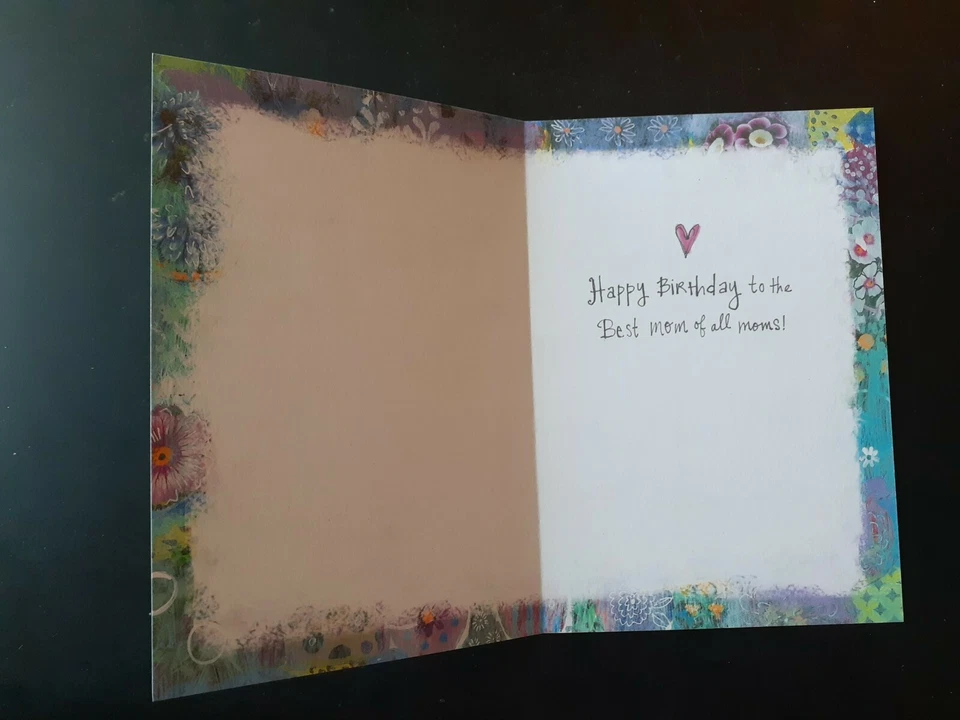 Happy Birthday to the
Best mom of all moms!